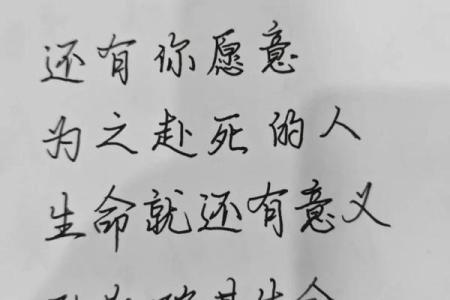 还有你愿意
为之赴死的人
生命就还有意义